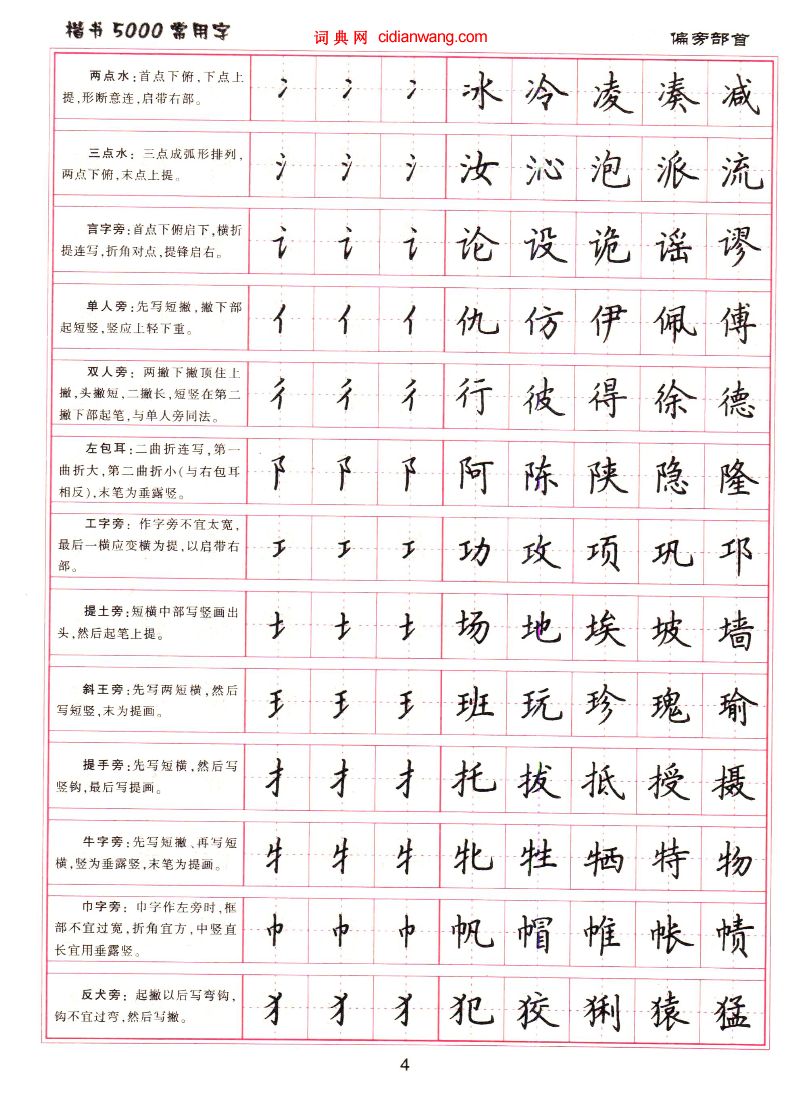 楷书5000常用字 词典网 cidianwang.com 偏旁部首
两点水：首点下俯，下点上
提，形断意连，启带右部。
冫 冫 冫 冰 冷 凌 凑 减
三点水：三点成弧形排列，
两点下俯，末点上提。
氵 氵 氵 汝 沁 泡 派 流
言字旁：首点下俯启下，横折
提连写，折角对点，提锋启右。
讠 讠 讠 论 设 诡 谣 谬
单人旁：先写短撇，撇下部
起短竖，竖应上轻下重。
亻 亻 亻 仇 仿 伊 佩 傅
双人旁：两撇下撇顶住上
撇，头撇短，二撇长，短竖在第二
撇下部起笔，与单人旁同法。
彳 彳 彳 行 彼 得 徐 德
左包耳：二曲折连写，第一
曲折大，第二曲折小（与右包耳
相反），末笔为垂露竖。
阝 阝 阝 阿 陈 陕 隐 隆
工字旁：作字旁不宜太宽，
最后一横应变横为提，以启带右
部。
工 工 工 功 攻 项 巩 邛
提土旁：短横中部写竖画出
头，然后起笔上提。
土 土 土 场 地 埃 坡 墙
斜王旁：先写两短横，然后
写短竖，末为提画。
王 王 王 班 玩 珍 瑰 瑜
提手旁：先写短横，然后写
竖钩，最后写提画。
扌 扌 扌 托 拔 抵 授 摄
牛字旁：先写短撇、再写短
横，竖为垂露竖，末笔为提画。
牜 牜 牜 牝 牲 牺 特 物
巾字旁：巾字作左旁时，框
部不宜过宽，折角宜方，中竖直
长宜用垂露竖。
巾 巾 巾 帆 帽 帷 帐 帻
反犬旁：起撇以后写弯钩，
钩不宜过弯，然后写撇。
犭 犭 犭 犯 狡 猁 猿 猛
4